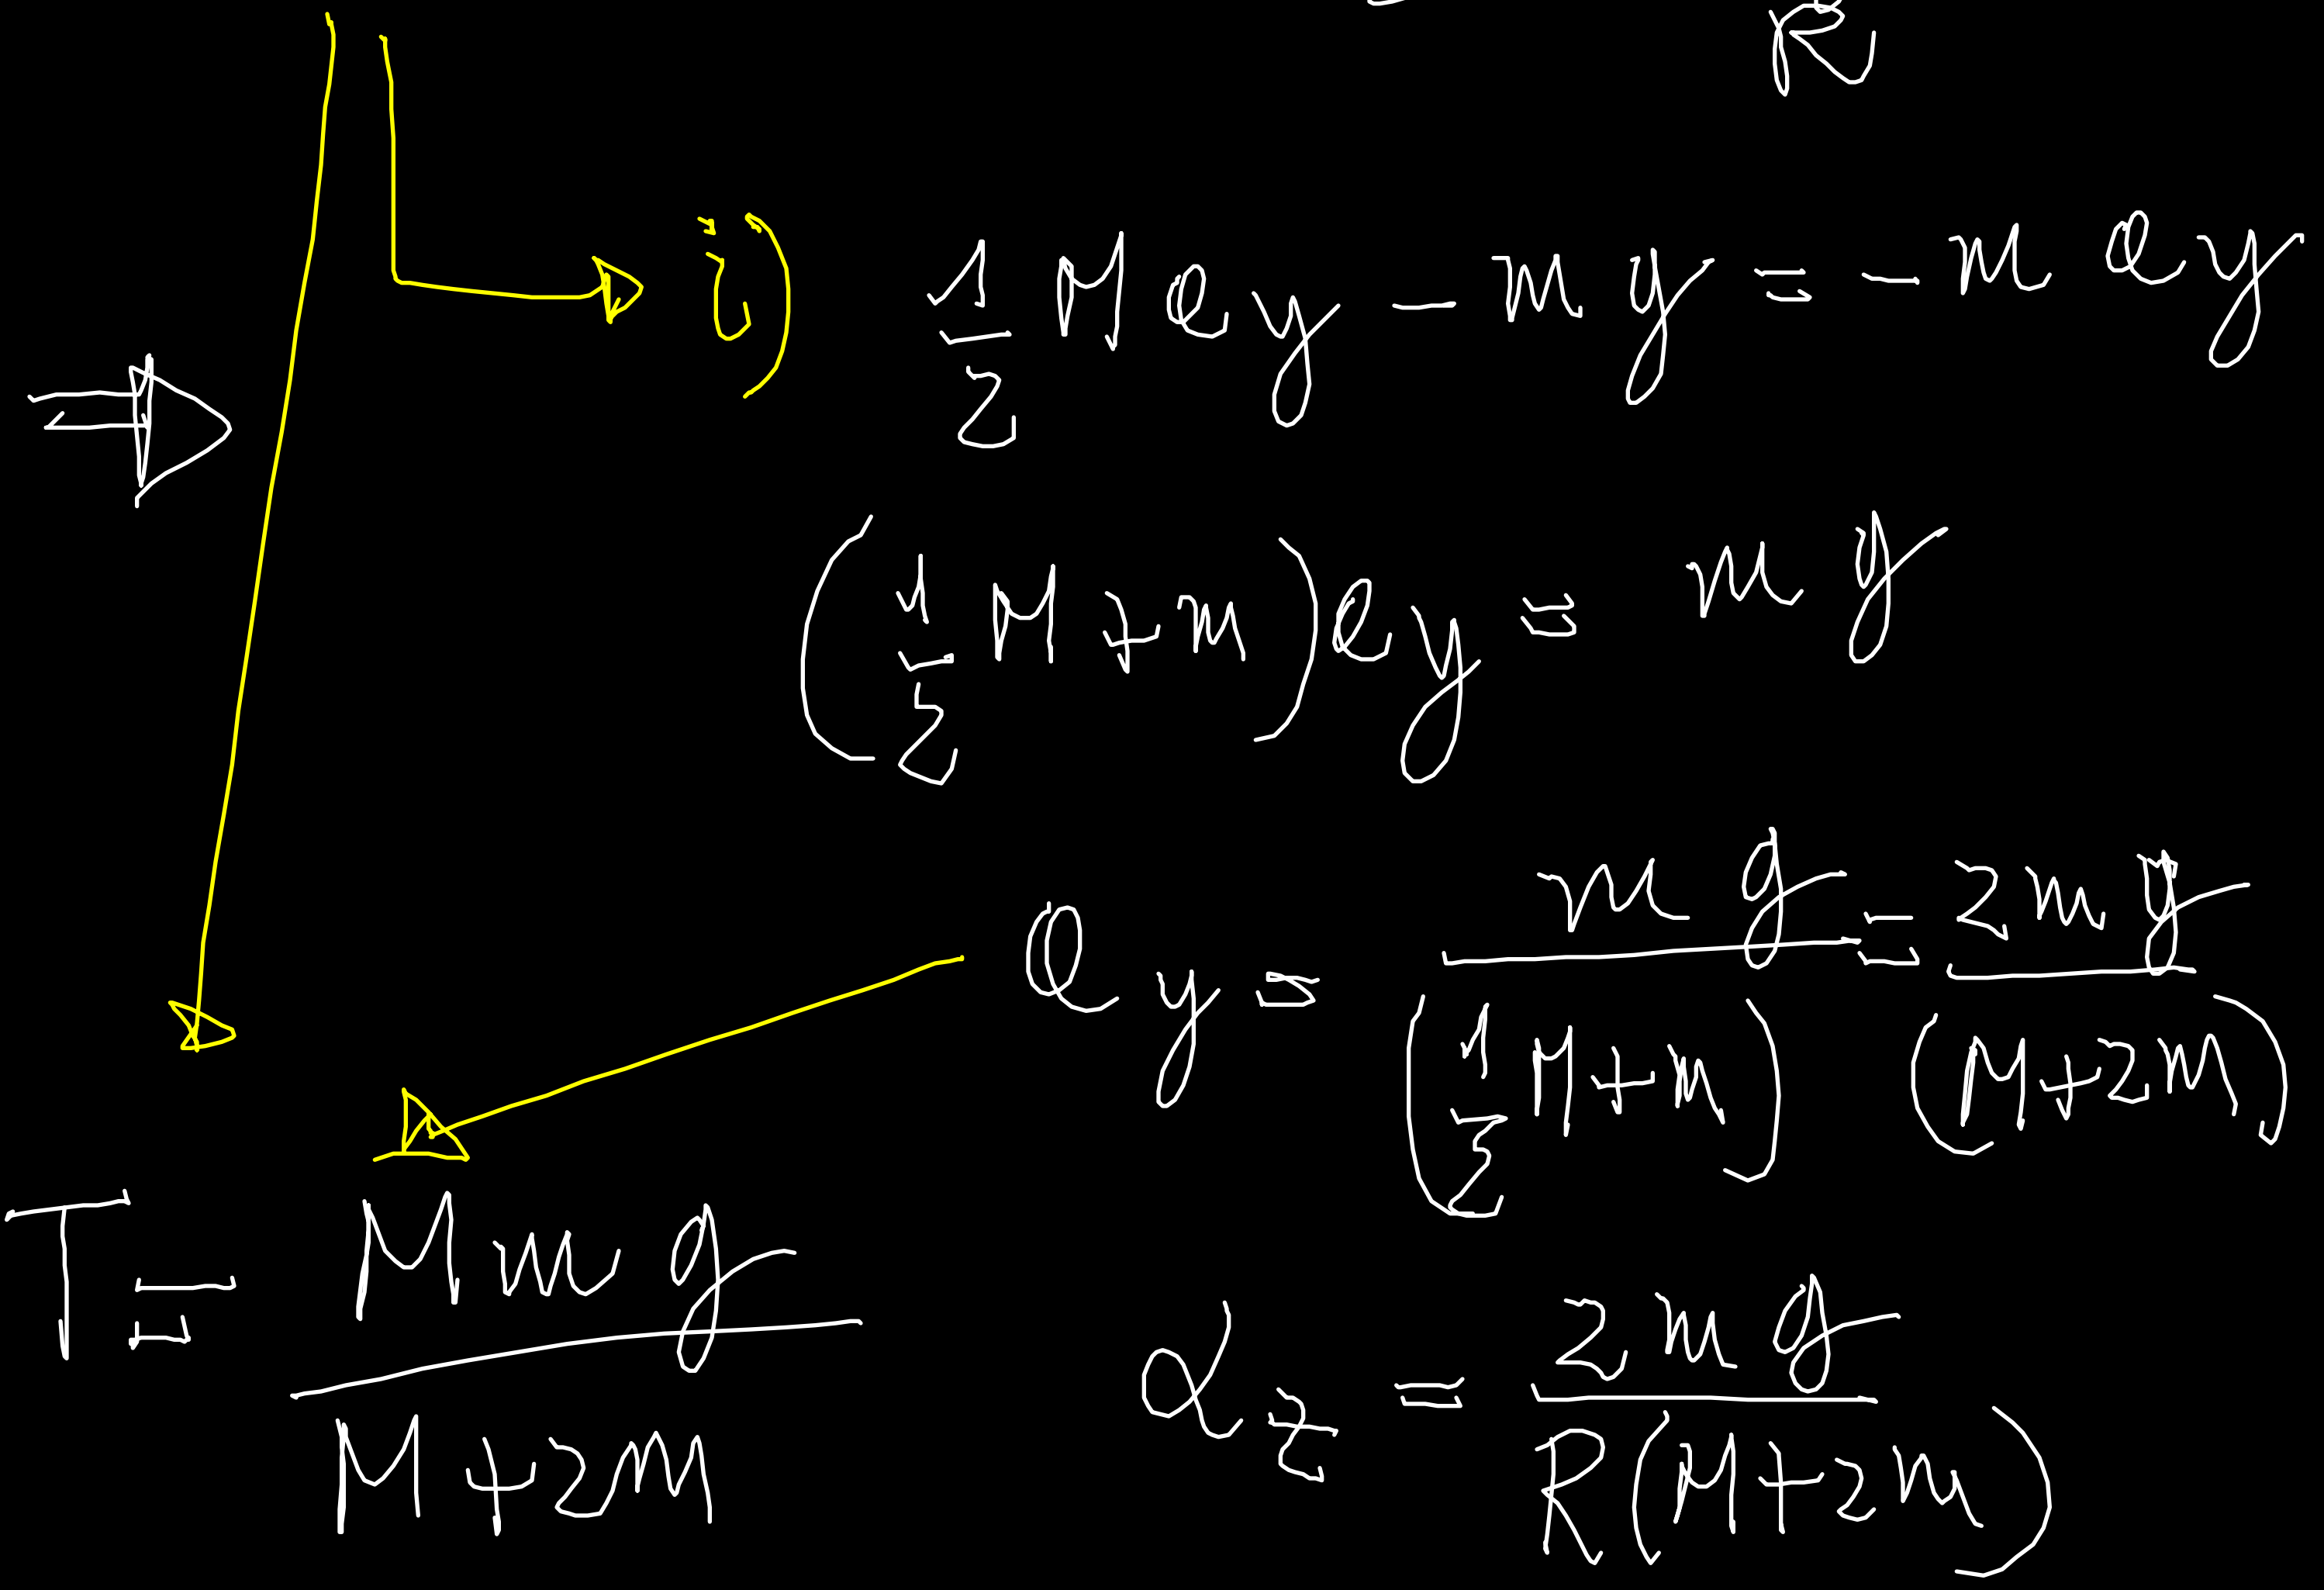 R
⇒ i) ½ M a_y - m g = - m a_y
(½ M + m) a_y = m g
a_y = m g / (½ M + m) = 2 m g / (M + 2m)
T = M m g / M + 2m
α_z = 2 m g / R (M + 2m)